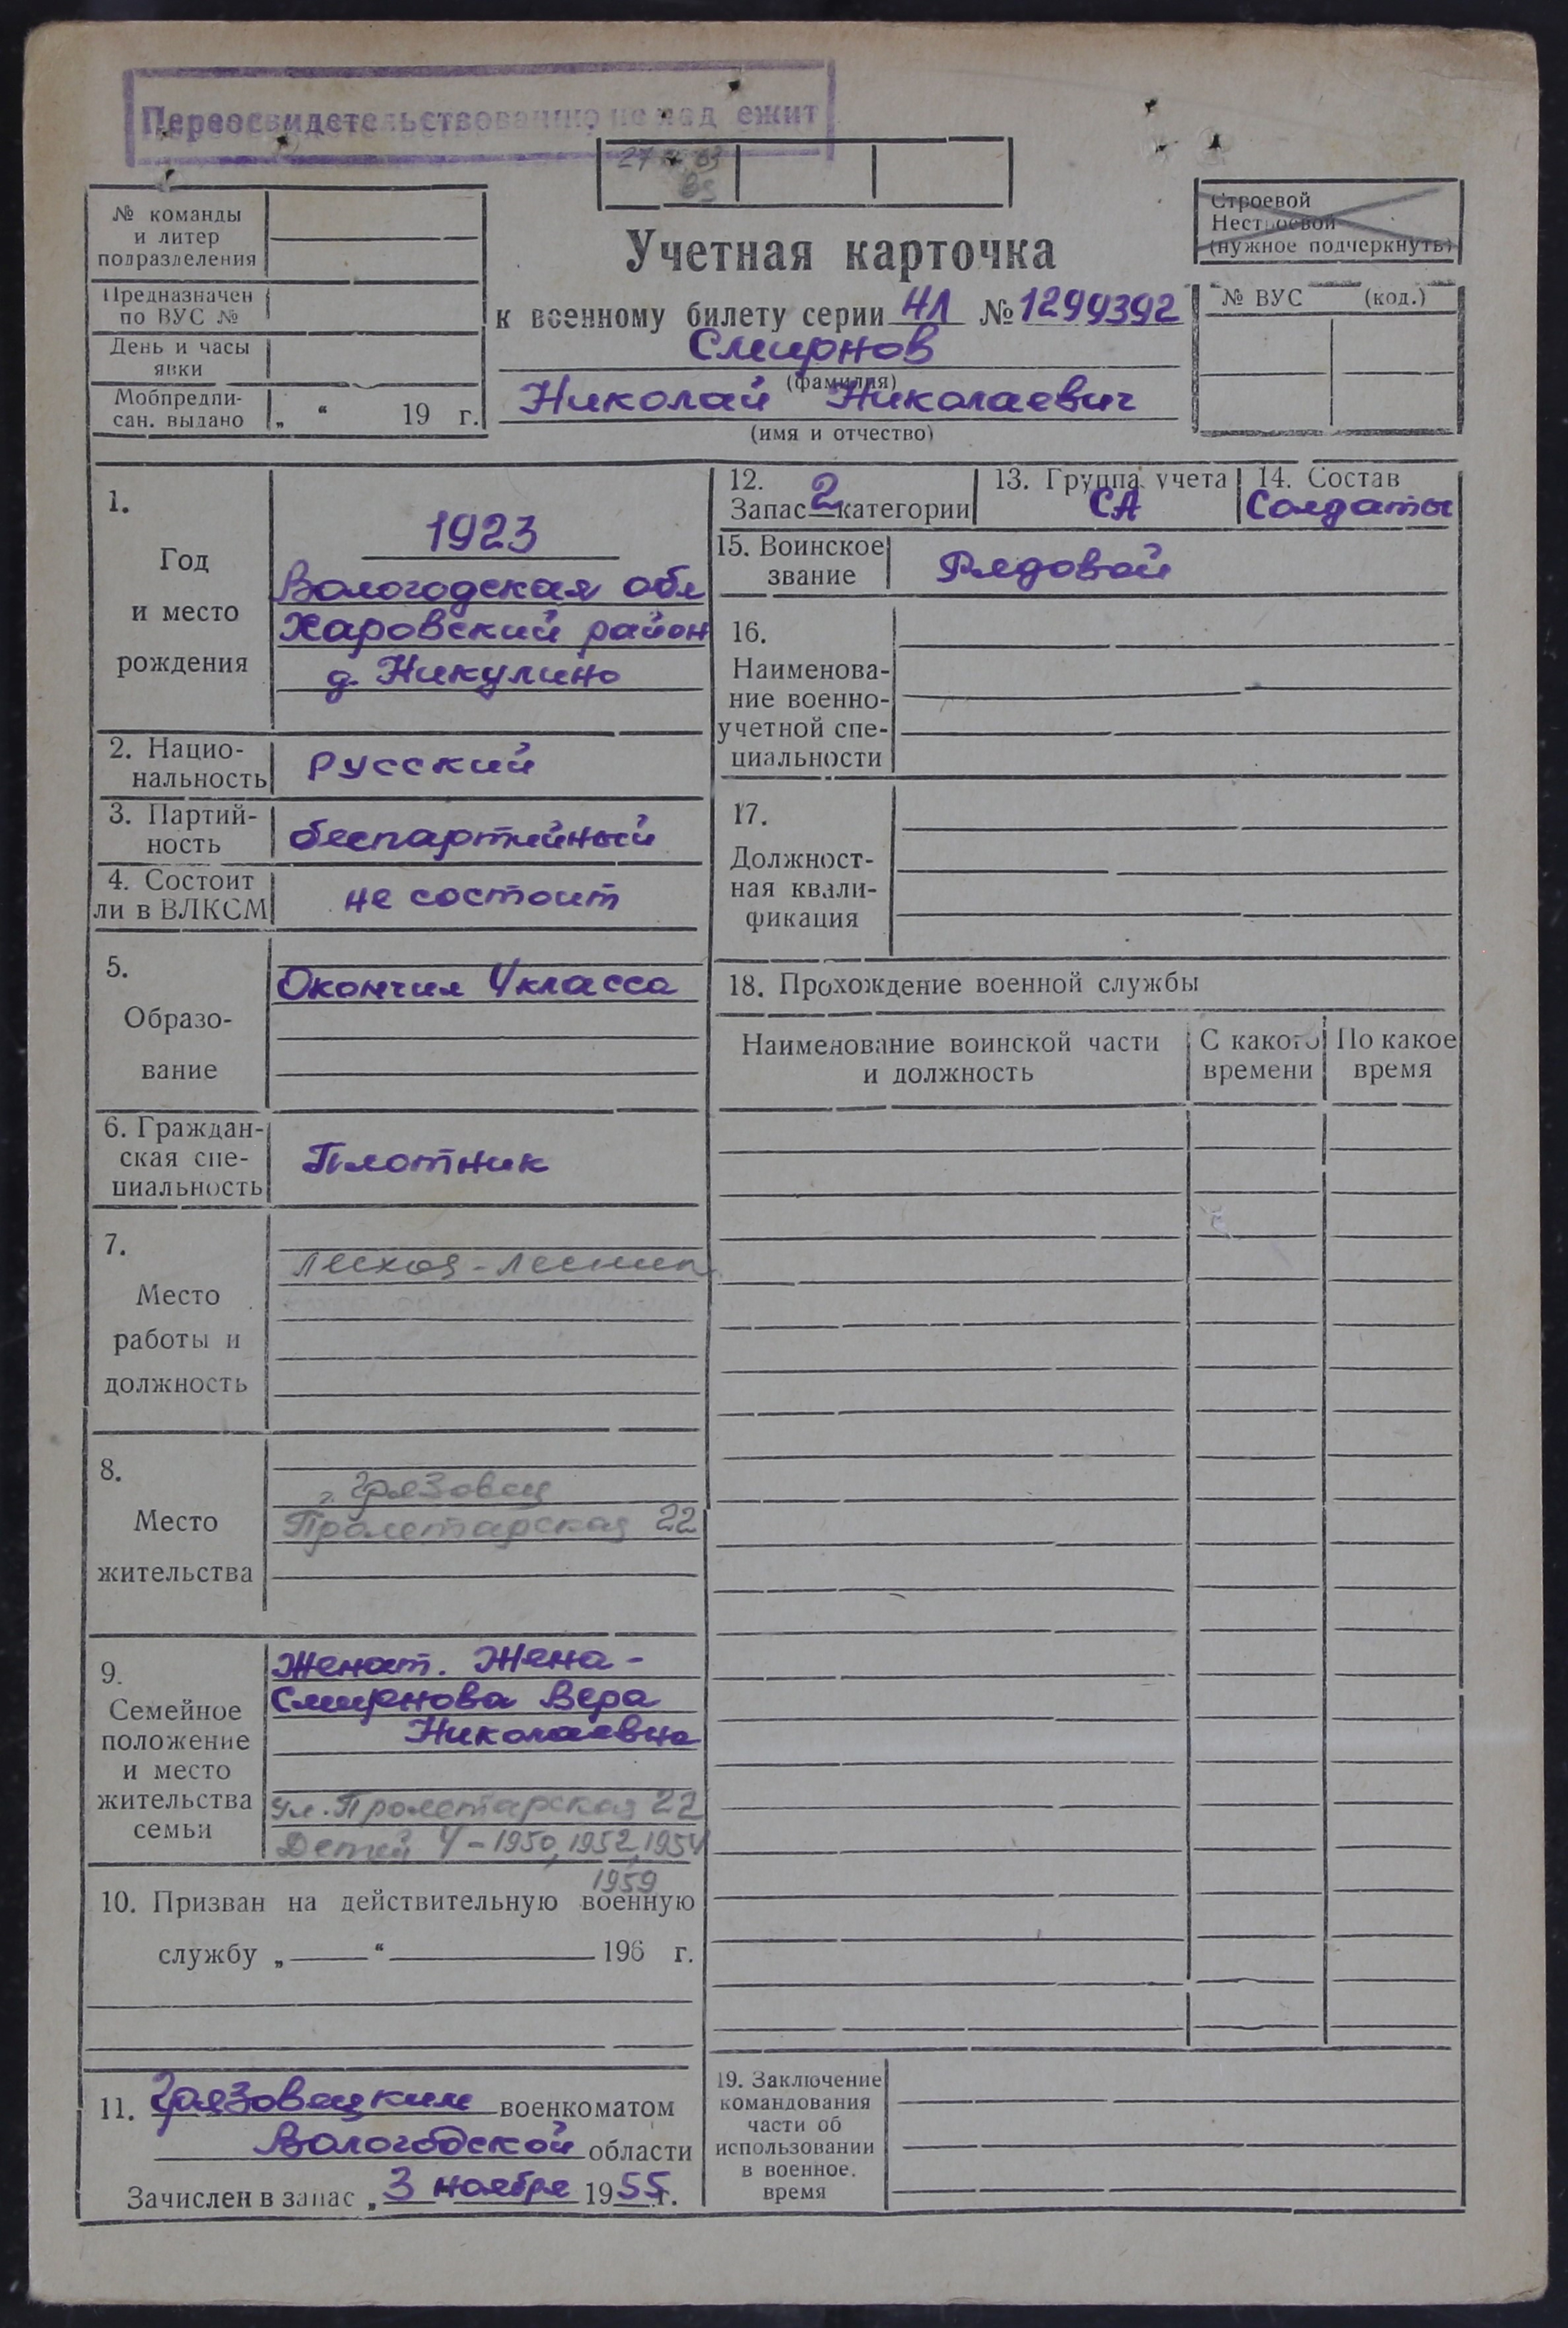 Переосвидетельствованию не подлежит
№ команды
и литер
подразделения
Предназначен
по ВУС №
День и часы
явки
Мобпредпи-
сан. выдано „ “ 19 г.
Учетная карточка
к военному билету серии НЛ № 1299392
Смирнов
(фамилия)
Николай Николаевич
(имя и отчество)
Строевой
Нестроевой
(нужное подчеркнуть)
№ ВУС (код.)
1.
Год
и место
рождения
1923
Вологодская обл
Харовский район
д. Никулино
2. Нацио-
нальность
Русский
3. Партий-
ность
беспартийный
4. Состоит
ли в ВЛКСМ
не состоит
5.
Образо-
вание
Окончил 4 класса
6. Граждан-
ская спе-
циальность
Плотник
7.
Место
работы и
должность
Лесхоз -
8.
Место
жительства
г. Грязовец
Пролетарская 22
9.
Семейное
положение
и место
жительства
семьи
Женат. Жена -
Смирнова Вера
Николаевна
ул. Пролетарская 22
Детей 4 - 1950, 1952, 1954
1959
10. Призван на действительную военную
службу „ “ 196 г.
11. Грязовецким военкоматом
Вологодской области
Зачислен в запас „ 3 ноября 1955 г.
12.
Запас 2 категории
13. Группа учета
СА
14. Состав
Солдаты
15. Воинское
звание
Рядовой
16.
Наименова-
ние военно-
учетной спе-
циальности
17.
Должност-
ная квали-
фикация
18. Прохождение военной службы
Наименование воинской части
и должность
С какого
времени
По какое
время
19. Заключение
командования
части об
использовании
в военное.
время